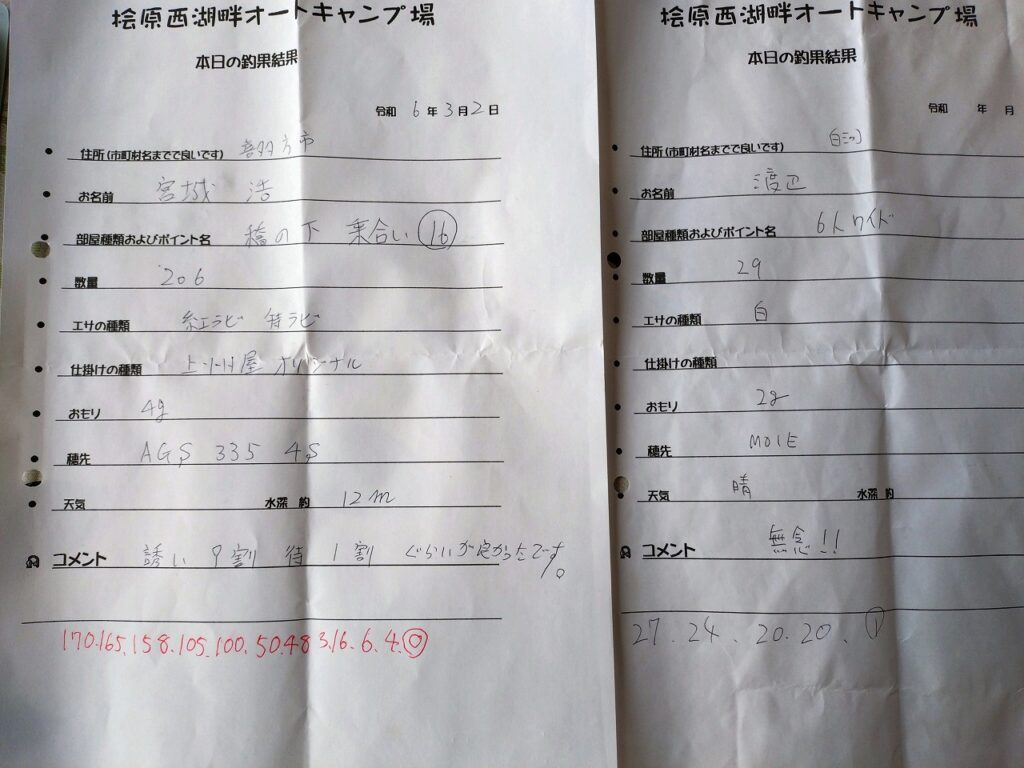 桧原西湖畔オートキャンプ場
本日の釣果結果
令和 6 年 3 月 2 日
住所(市町村名までで良いです) 喜多方市
お名前 宮城 浩
部屋種類およびポイント名 橋の下 乗合い ⑯
数量 206
エサの種類 紅ラビ 特ラビ
仕掛けの種類 屋 オリジナル
おもり 4g
穂先 AGS 335 4S
天気 水深 約 12m
コメント 誘い 9割 待 1割 ぐらいが良かったです。
170.165.158.105.100.50.48 3.16.6.4.⓪
桧原西湖畔オートキャンプ場
本日の釣果結果
令和 年 月
住所(市町村名までで良いです)
お名前 渡辺
部屋種類およびポイント名 6人ワイド
数量 29
エサの種類 白
仕掛けの種類
おもり 2g
穂先 MOIE
天気 晴 水深 約
コメント 無念!!
27.24.20.20.①